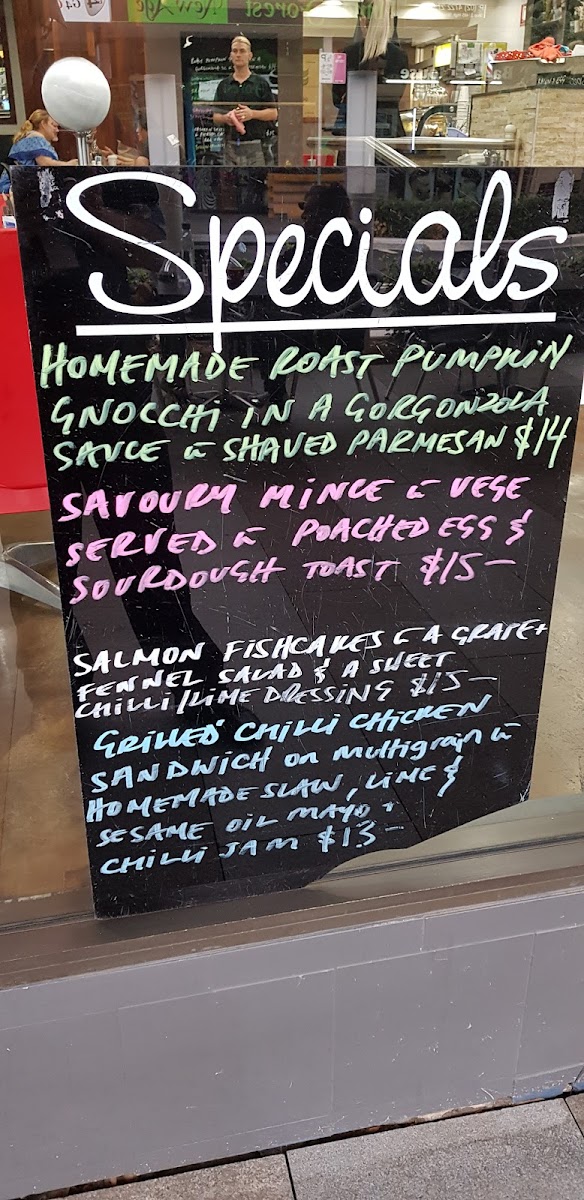 Specials
HOMEMADE ROAST PUMPKIN
GNOCCHI IN A GORGONZOLA
SAUCE w SHAVED PARMESAN $14
SAVOURY MINCE w VEGE
SERVED w POACHED EGG &
SOURDOUGH TOAST $15-
SALMON FISHCAKES w A GRAPE +
FENNEL SALAD & A SWEET
CHILLI/LIME DRESSING $15-
GRILLED CHILLI CHICKEN
SANDWICH on multigrain w
HOMEMADE SLAW, LIME &
SESAME OIL MAYO +
CHILLI JAM $13-